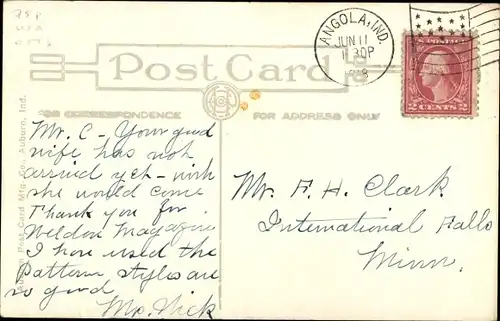 75p
ANGOLA, IND.
JUN 11
1 30P
U.S. POSTAGE
2 CENTS 2
Post Card
FOR CORRESPONDENCE
FOR ADDRESS ONLY
Auburn Post Card Mfg. Co., Auburn, Ind.
Mr. C - Your good
wife has not
arrived yet - wish
she would come
Thank you for
Weldon Magazine
I have used the
Pattern styles are
so good
Mrs. Nick
Mr. F. H. Clark
International Falls
Minn.